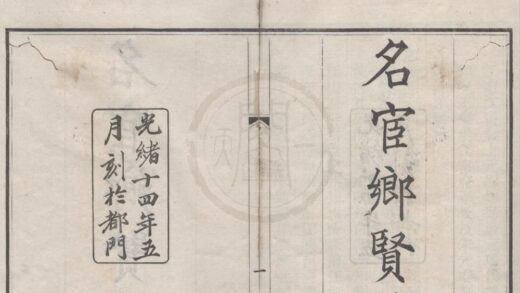 名宦鄉賢
一
光緒十四年五
月刻於都門